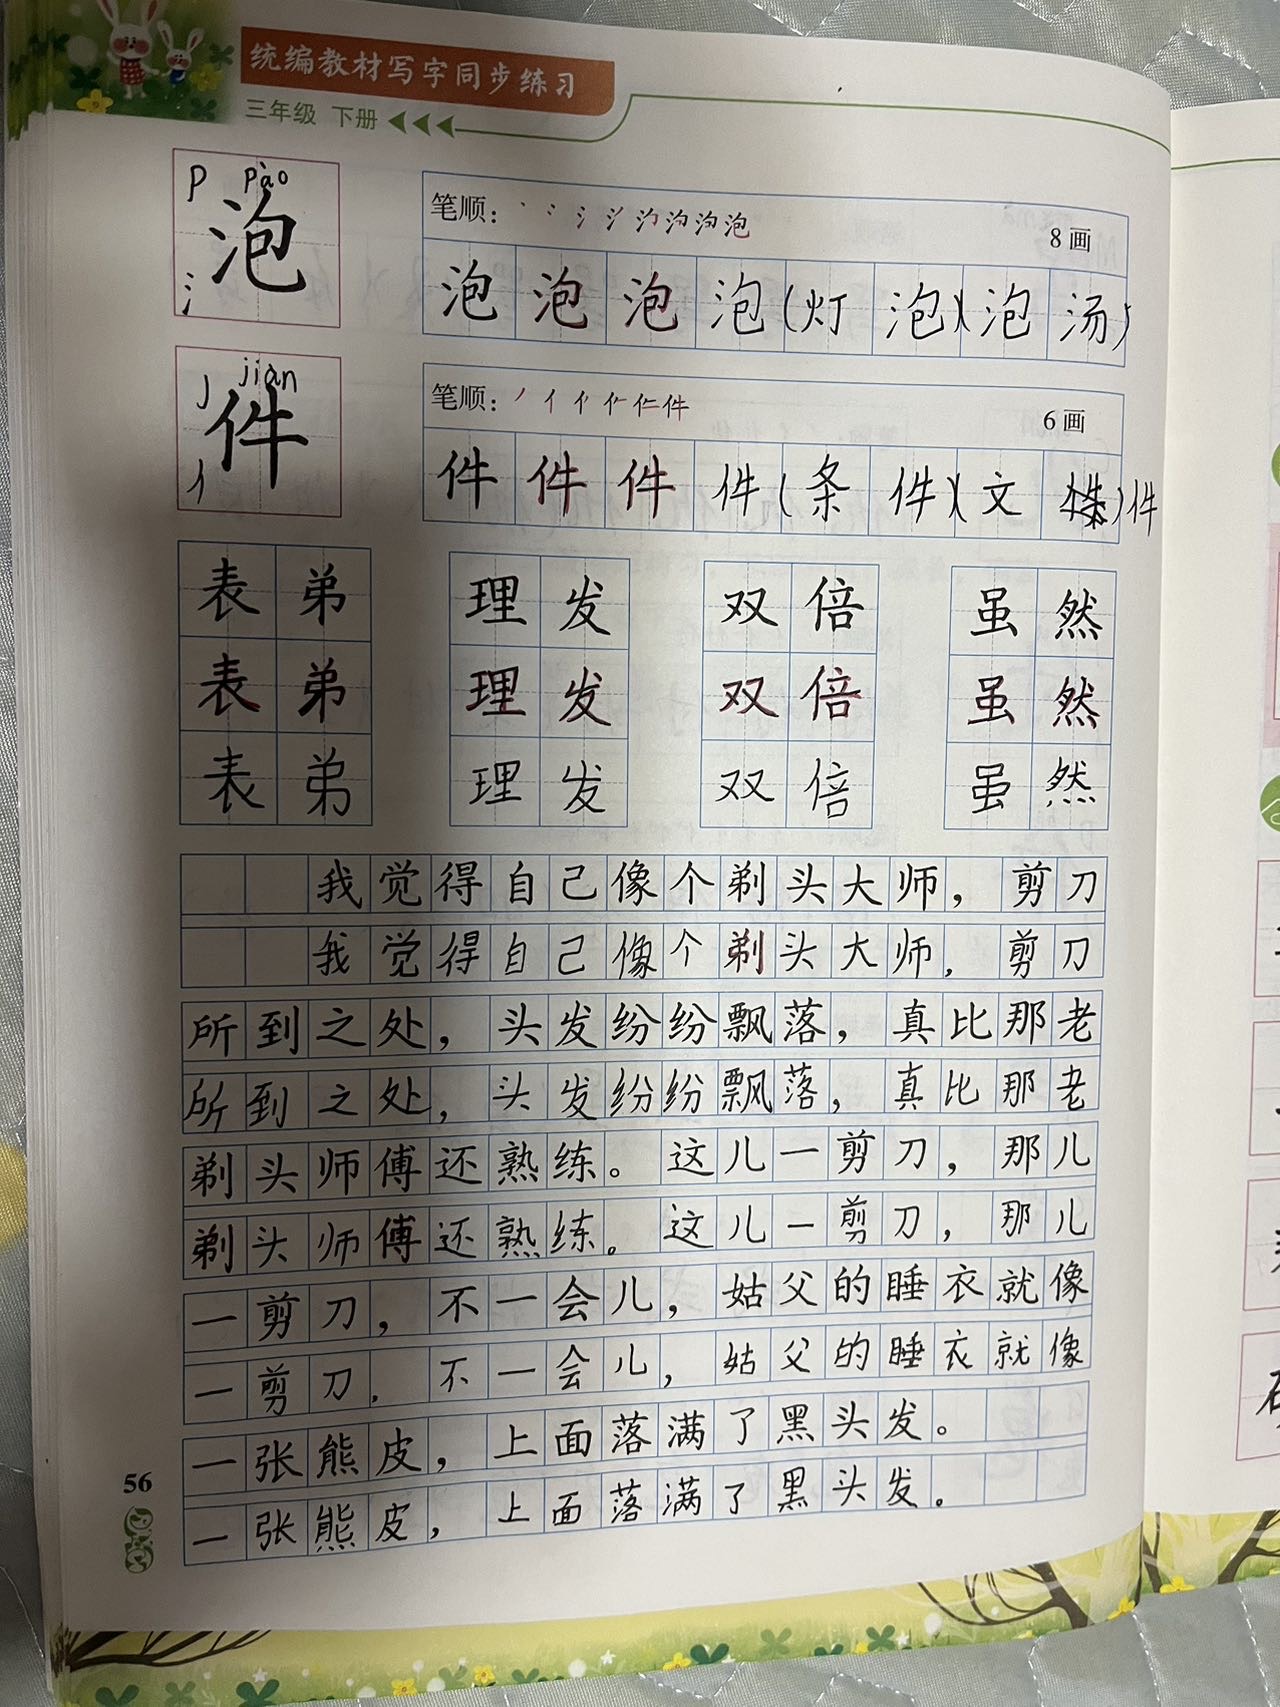 统编教材写字同步练习
三年级 下册
P pào
泡
氵
笔顺：
8画
泡泡泡泡(灯泡)(泡汤)
J jiàn
件
亻
笔顺：
6画
件件件件(条件)(文 )件
表弟 理发 双倍 虽然
表弟 理发 双倍 虽然
表弟 理发 双倍 虽然
我觉得自己像个剃头大师，剪刀
我觉得自己像个剃头大师，剪刀
所到之处，头发纷纷飘落，真比那老
所到之处，头发纷纷飘落，真比那老
剃头师傅还熟练。这儿一剪刀，那儿
剃头师傅还熟练。这儿一剪刀，那儿
一剪刀，不一会儿，姑父的睡衣就像
一剪刀，不一会儿，姑父的睡衣就像
一张熊皮，上面落满了黑头发。
一张熊皮，上面落满了黑头发。
56